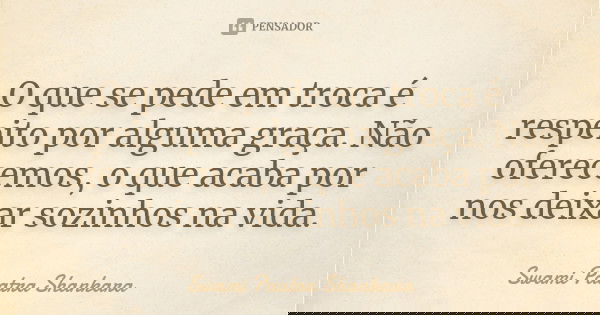 PENSADOR
O que se pede em troca é
respeito por alguma graça. Não
oferecemos, o que acaba por
nos deixar sozinhos na vida.
Swami Paatra Shankara